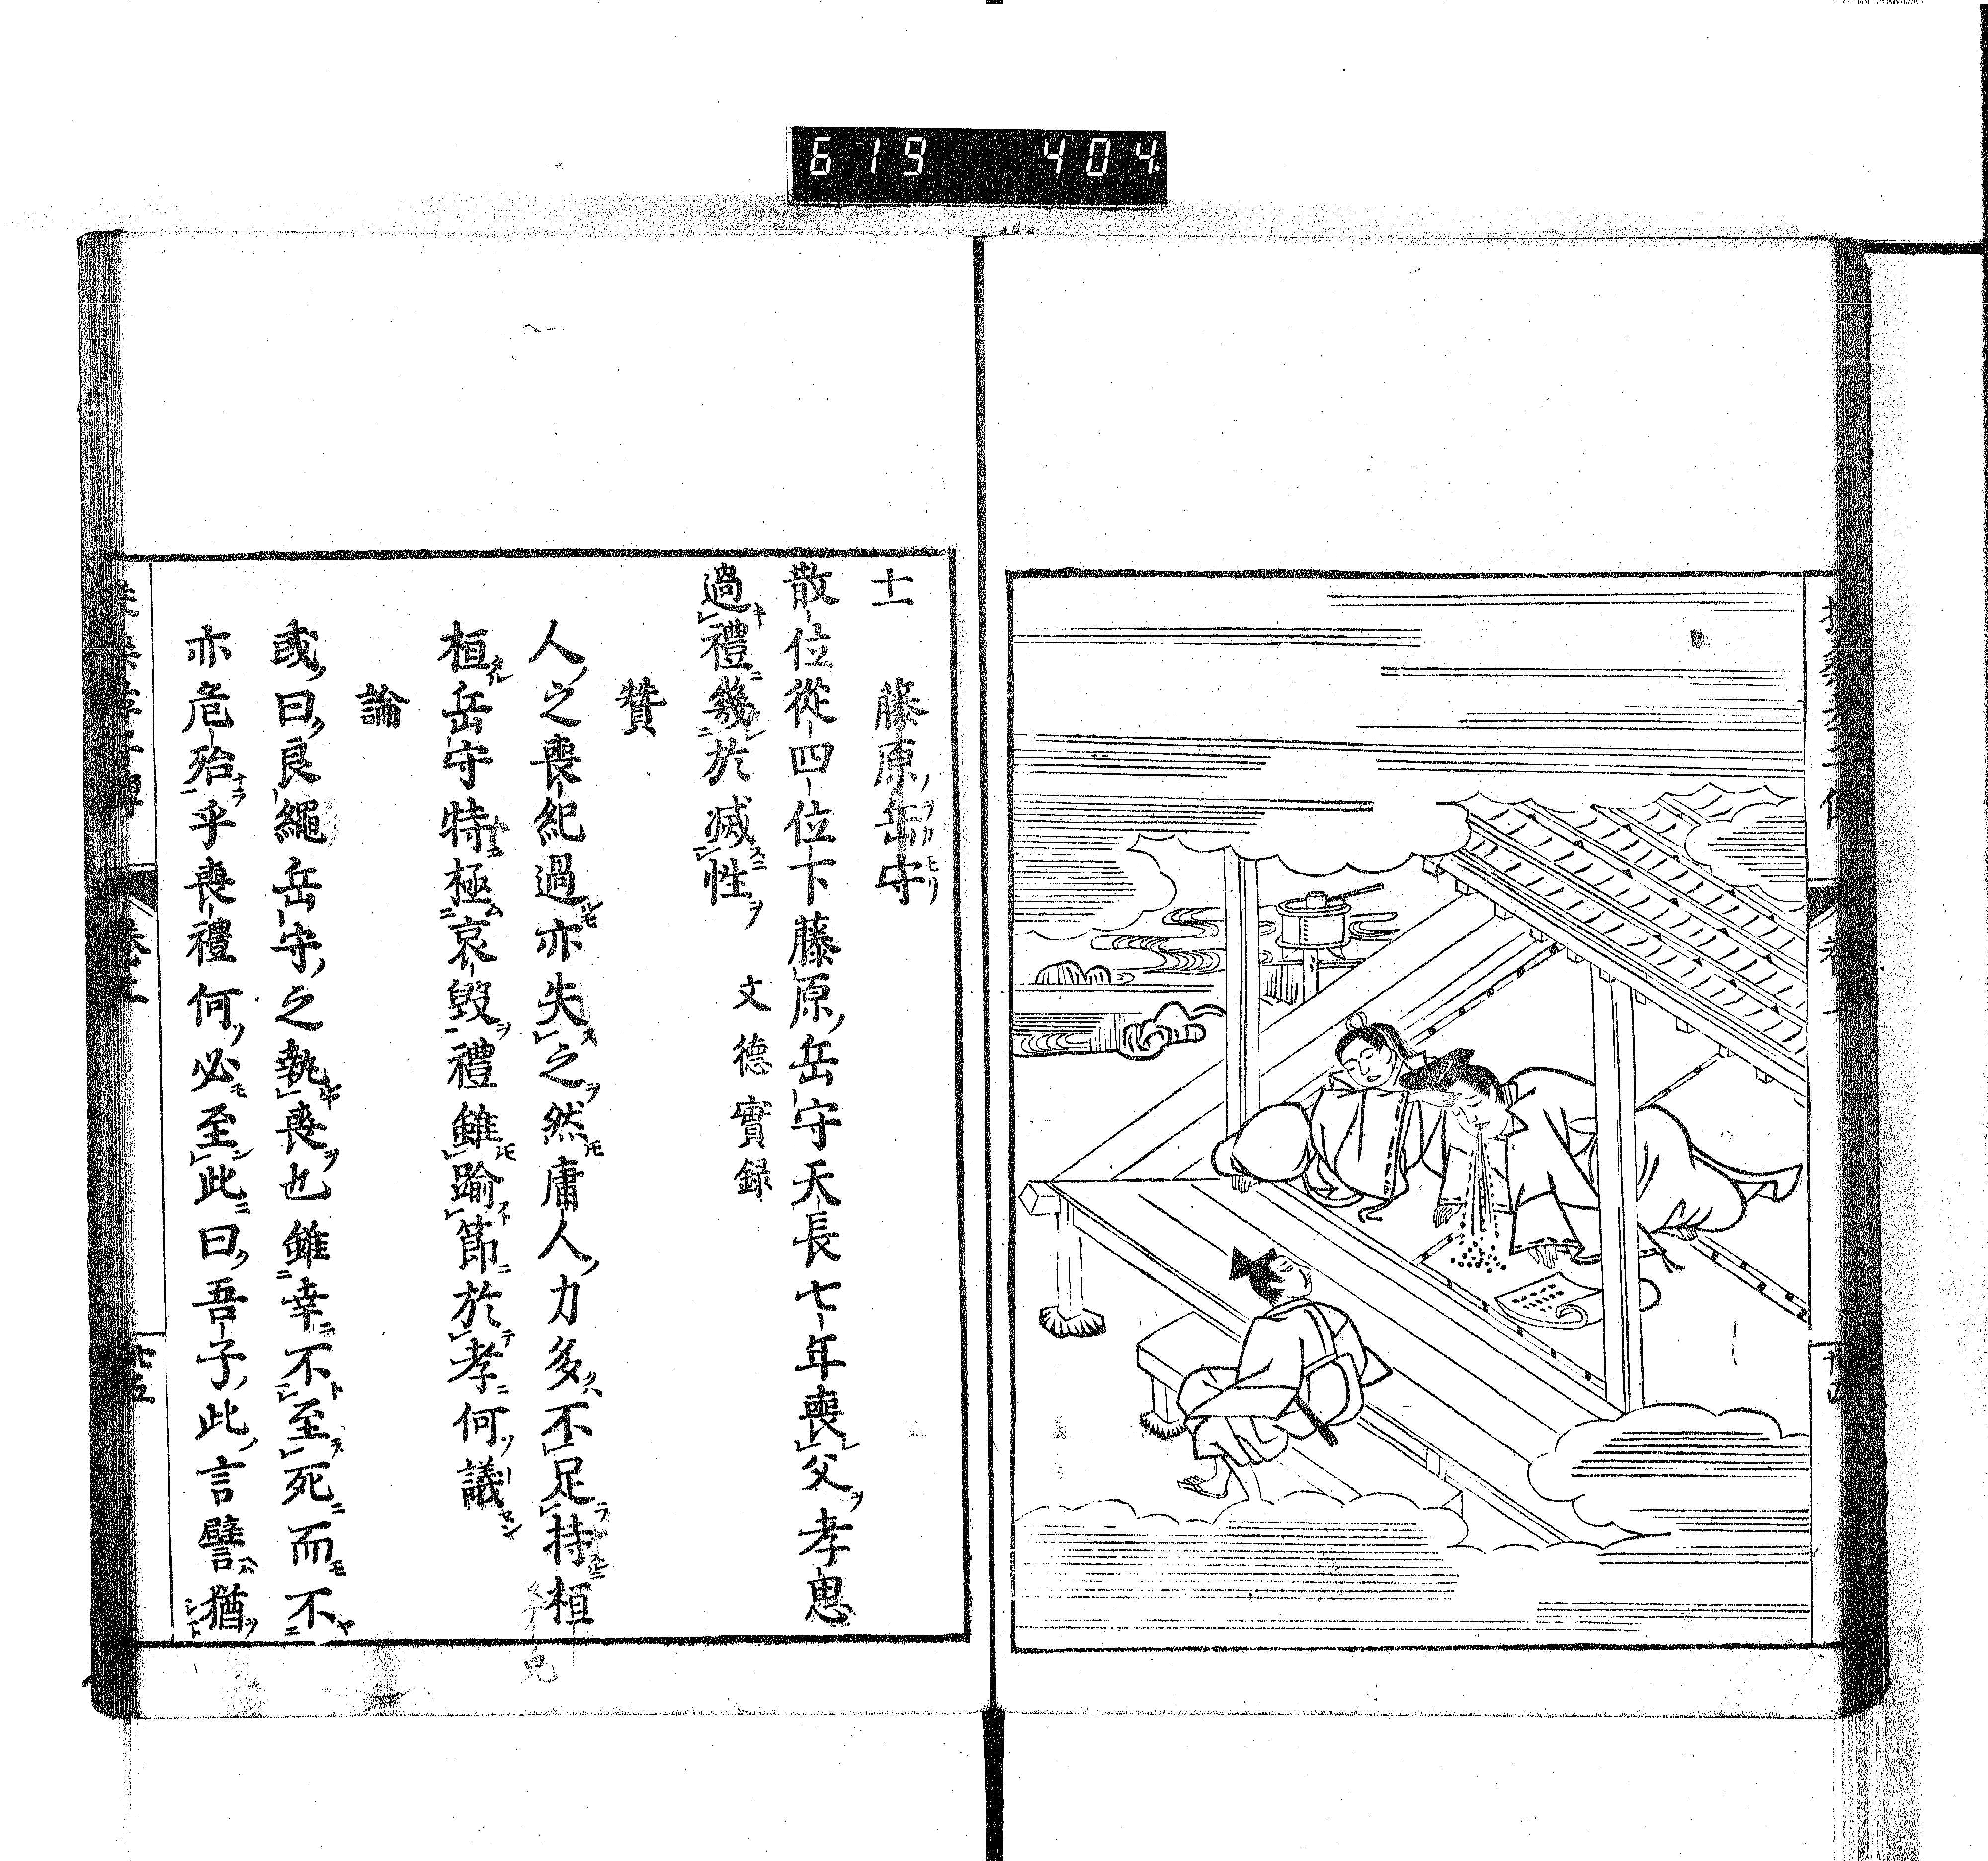 619 404
十一 藤原岳守
散位從四位下藤原岳守天長七年喪父孝思
過禮幾於滅性 文德實録
贊
人之喪紀過亦失之然庸人力多不足持桓
桓岳守特極哀毀禮雖踰節於孝何議
論
或曰良繩岳守之執喪也雖幸不至死而不
亦危殆乎喪禮何必至此曰吾子此言譬猶